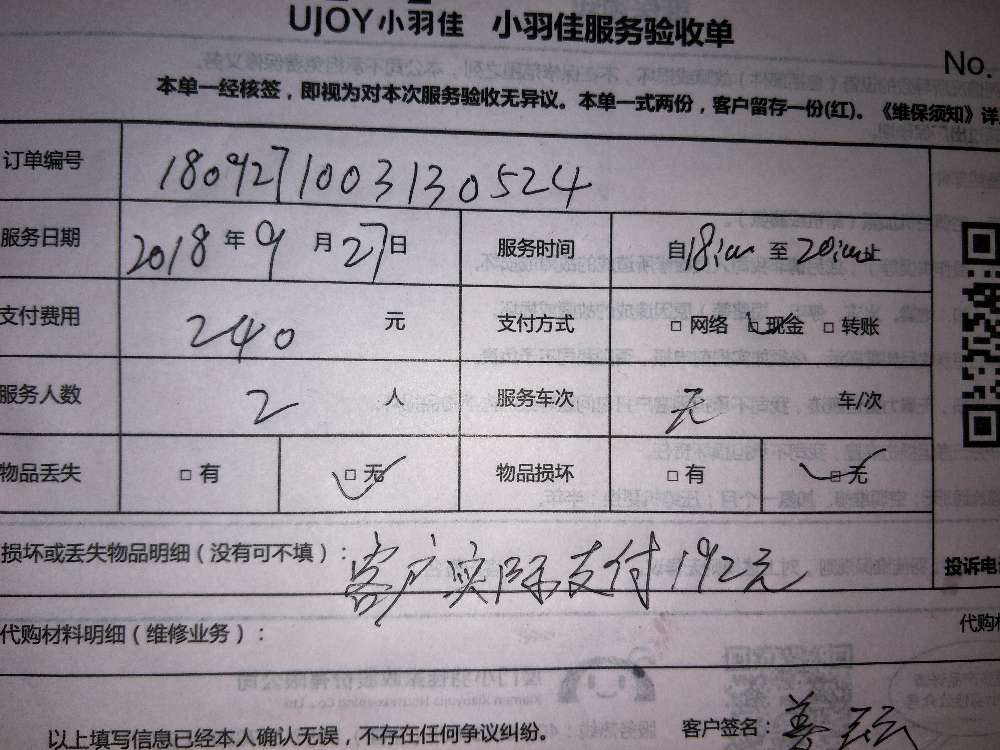 UJOY小羽佳 小羽佳服务验收单
No.
本单一经核签，即视为对本次服务验收无异议。本单一式两份，客户留存一份(红)。《维保须知》详
订单编号 180927100313 0524
服务日期 2018 年 9 月 27 日 服务时间 自 18:00 至 20:00 止
支付费用 240 元 支付方式 □ 网络 □ 现金 □ 转账
服务人数 2 人 服务车次 无 车/次
物品丢失 □ 有 □ 无 物品损坏 □ 有 □ 无
损坏或丢失物品明细（没有可不填）：客户实际支付192元
投诉电
代购材料明细（维修业务）：
代购
以上填写信息已经本人确认无误，不存在任何争议纠纷。
客户签名：